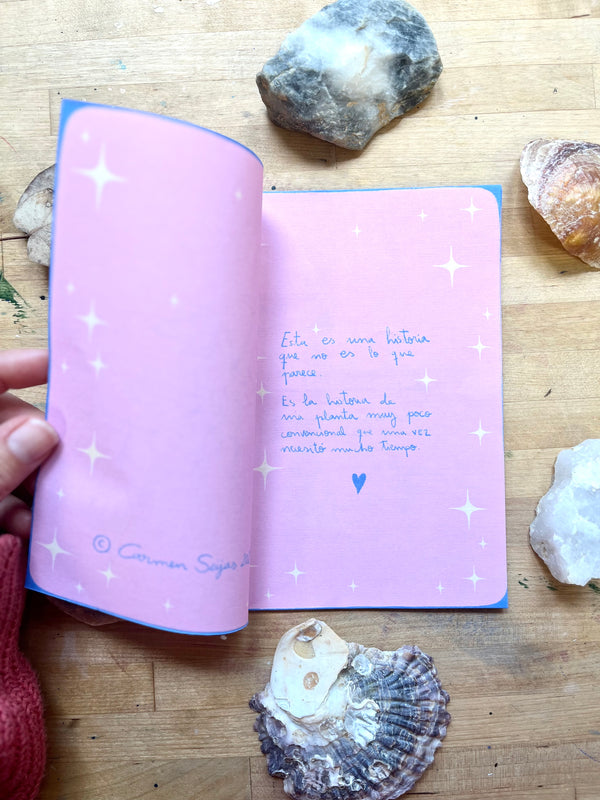 © Carmen Sajas
Esta es una historia
que no es lo que
parece.
Es la historia de
una planta muy poco
convencional que una vez
necesitó mucho tiempo.